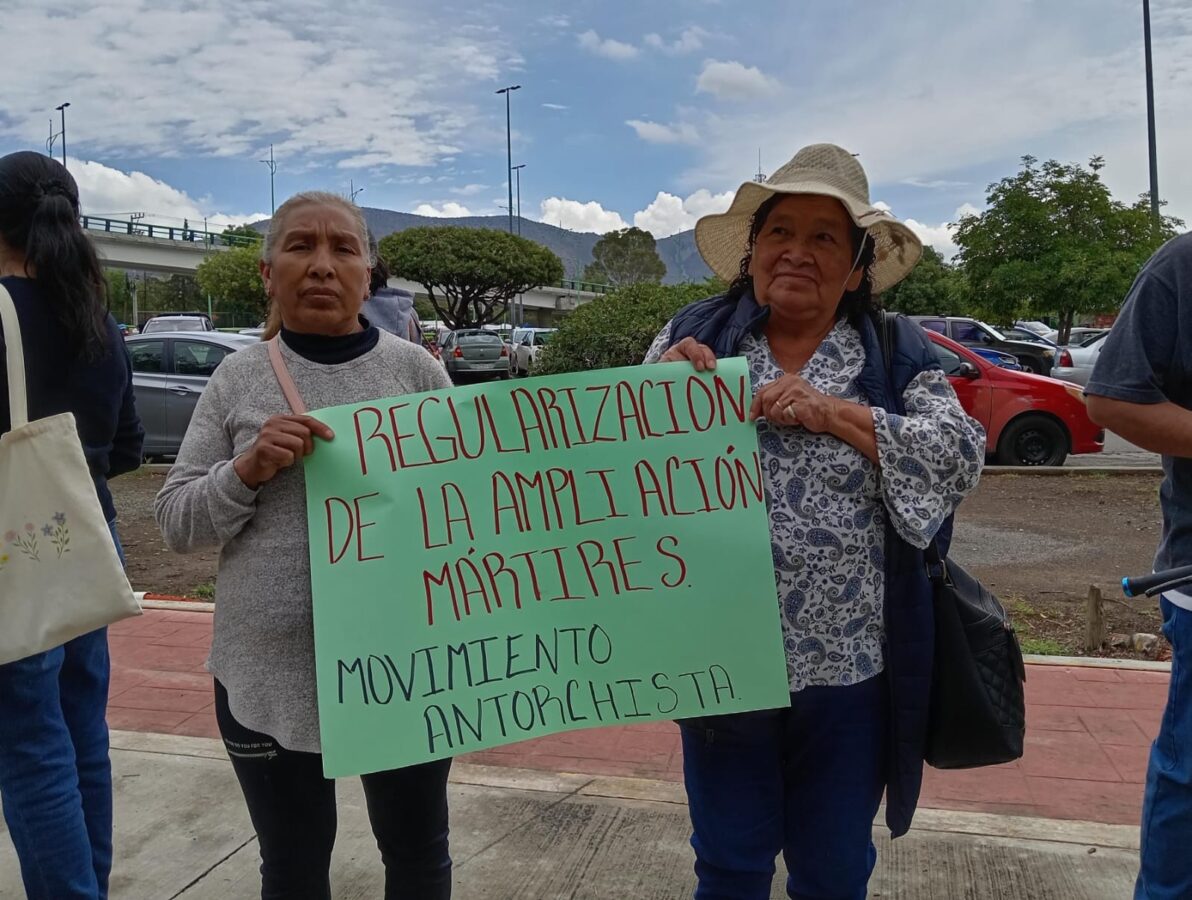 REGULARIZACION
DE LA AMPLIACIÓN
MÁRTIRES.
MOVIMIENTO
ANTORCHISTA.